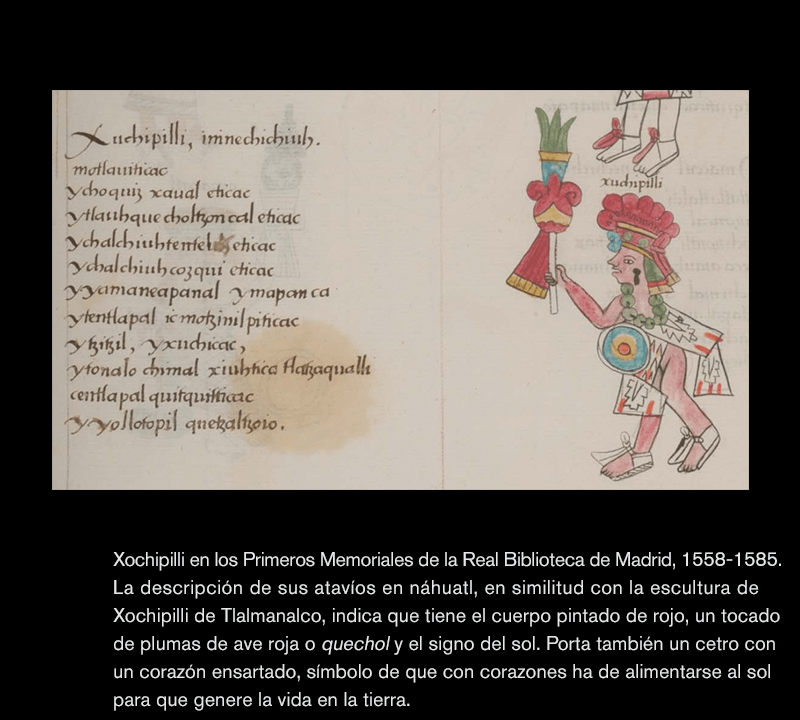 Xuchipilli, imnechichiuh.
motlauiticac
ychoquiz xaual eticac
ytlauhquecholtzoncal eticac
ychalchiuhtentel eticac
ychalchiuhcozqui eticac
yyamaneapanal ymapanca
ytentlapal ic motzinilpiticac
ytzitzil, yxuchicac,
ytonalo chimal xiuhtica tlatzaqualli
centlapal quitquiticac
yyollotopil quetzaltzoio.
xuchipilli
Xochipilli en los Primeros Memoriales de la Real Biblioteca de Madrid, 1558-1585.
La descripción de sus atavíos en náhuatl, en similitud con la escultura de
Xochipilli de Tlalmanalco, indica que tiene el cuerpo pintado de rojo, un tocado
de plumas de ave roja o quechol y el signo del sol. Porta también un cetro con
un corazón ensartado, símbolo de que con corazones ha de alimentarse al sol
para que genere la vida en la tierra.